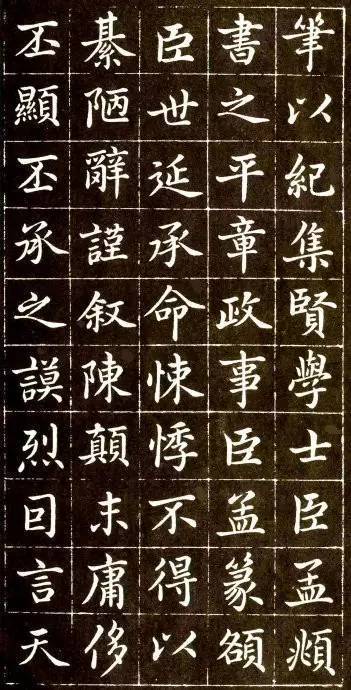 筆以紀集賢學士臣孟頫
書之平章政事臣孟篆額
臣世延承命悚悸不得以
綦陋辭謹叙陳顛末庸侈
丕顯丕承之謨烈回言天